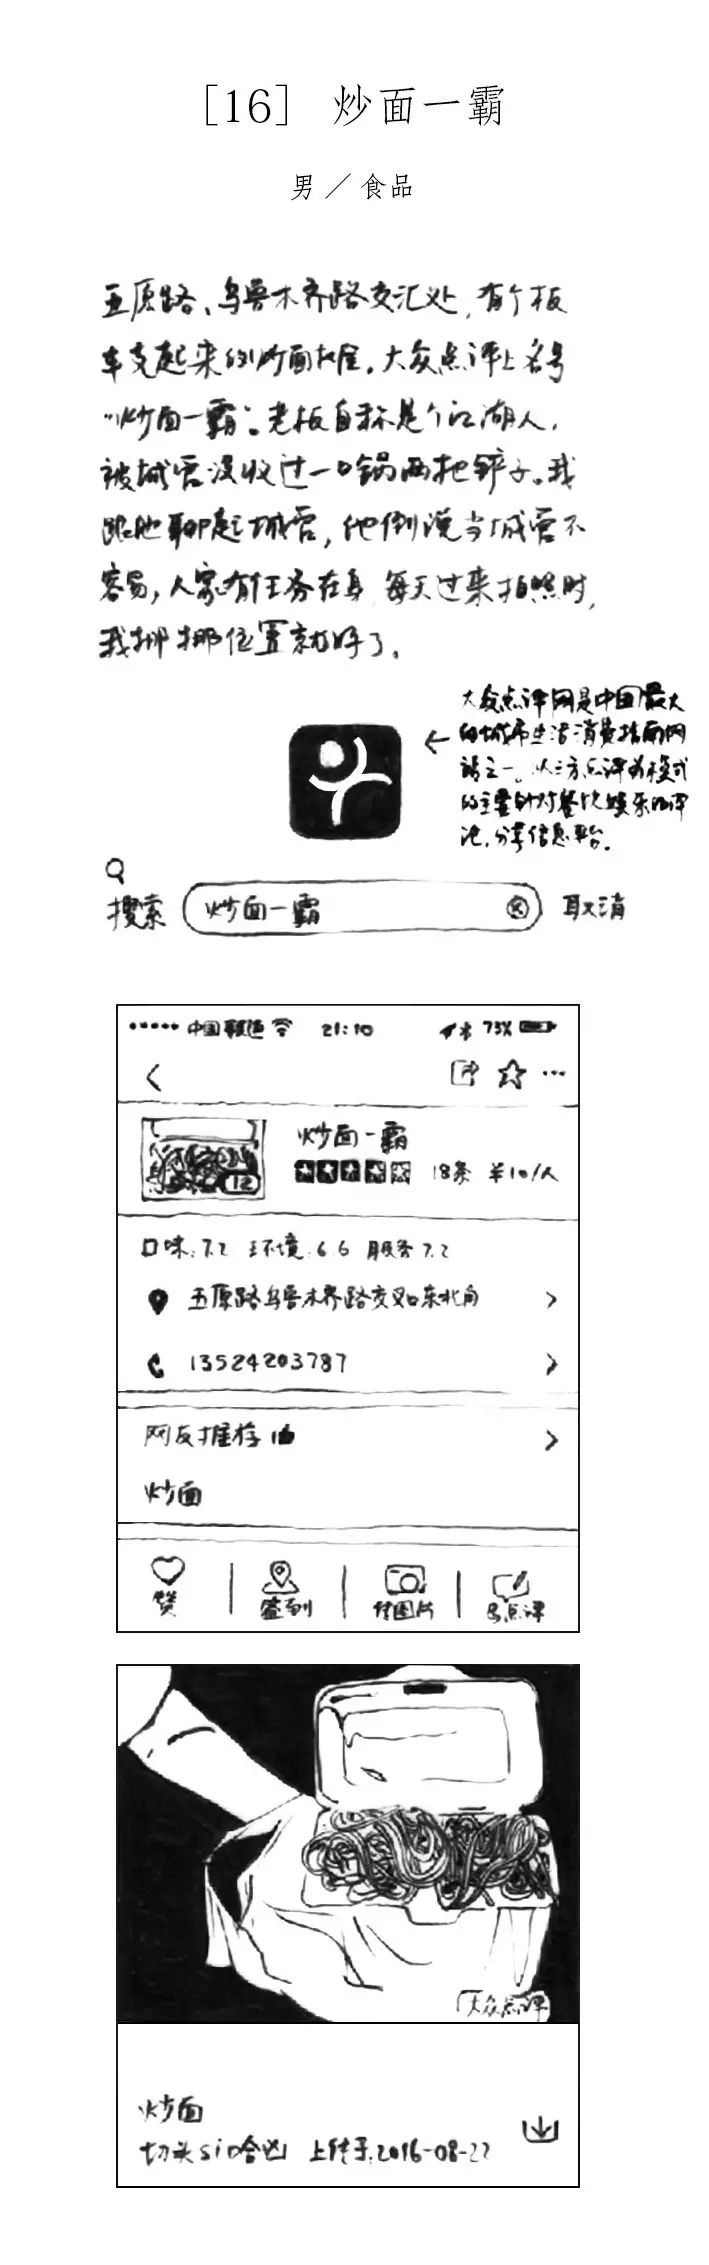 [16] 炒面一霸
男／食品
五原路、乌鲁木齐路交汇处,有个板
车支起来的炒面摊。大众点评上名号
“炒面一霸”。老板自称是个江湖人,
被城管没收过一口锅两把铲子。我
跟他聊起城管,他倒说当城管不
容易,人家有任务在身,每天过来拍照时,
我挪挪位置就好了。
大众点评网是中国最大
的城市生活消费指南网
站之一。以三方点评为模式
的主要针对餐饮娱乐的评
论,分享信息平台。
搜索 炒面一霸 取消
中国联通 21:10 73%
炒面一霸
18条 ¥10/人
12
口味:7.2 环境:6.6 服务7.2
五原路乌鲁木齐路交叉口东北角
13524203787
网友推荐
炒面
赞 签到 传图片 写点评
大众点评
炒面
切头sir 上传于:2016-08-22